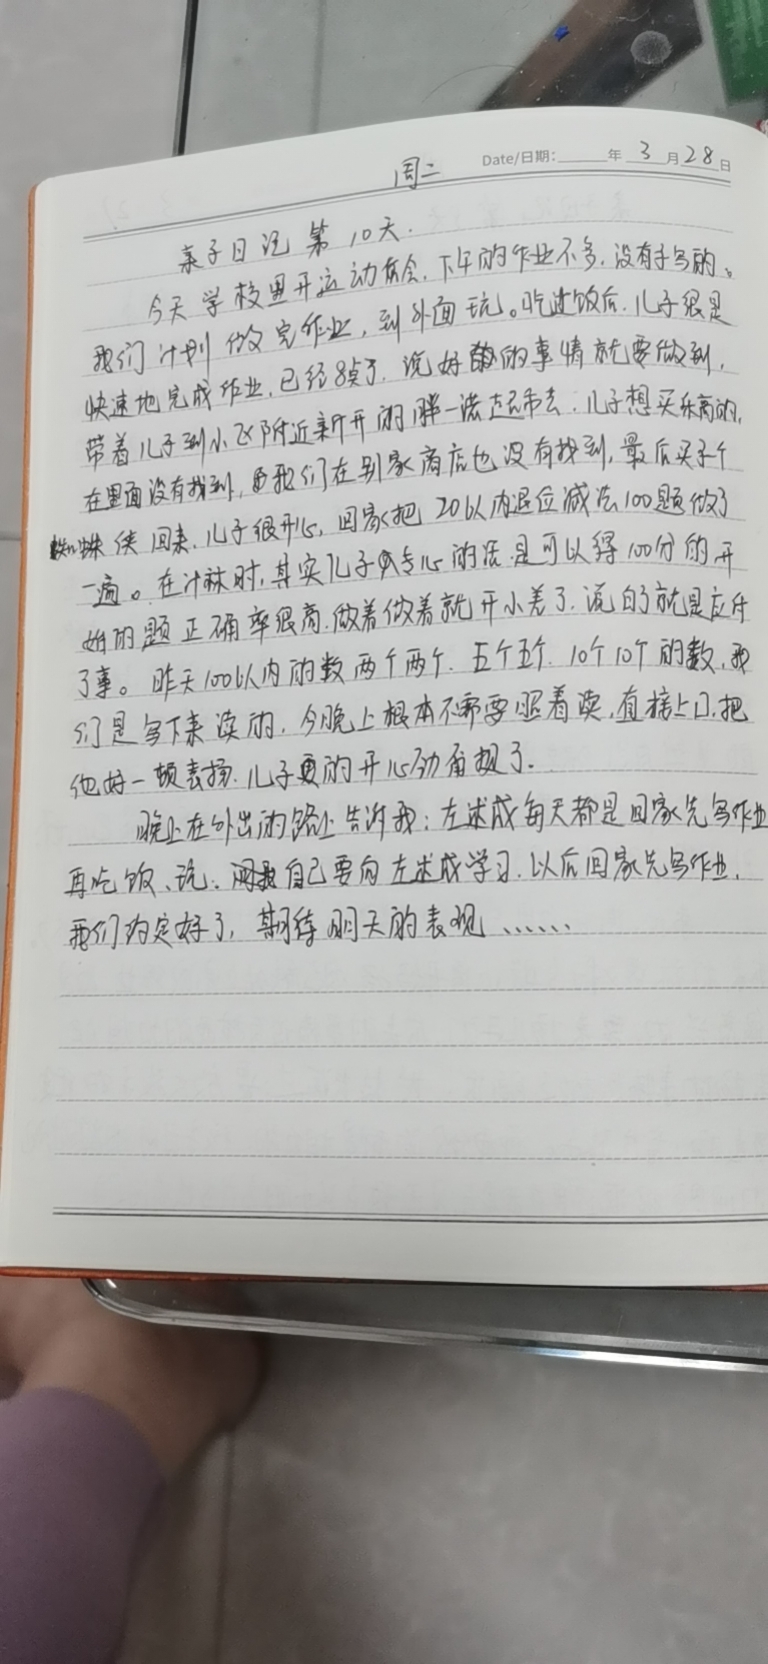 周二 Date/日期:____年 3 月 28 日
亲子日记 第 10天.
今天学校里开运动会.下午的作业不多.没有手写的。
我们计划做完作业,到外面玩。吃过饭后.儿子很是
快速地完成作业.已经8点了.说好的事情就要做到,
带着儿子到小飞附近新开的胖一浩超市去.儿子想买乐高的,
在里面没有找到,我们在别家商店也没有找到,最后买了个
蜘蛛侠回来.儿子很开心,回家把20以内退位减法100题做了
一遍。在计时时,其实儿子专心的话是可以得100分的.开
始的题正确率很高.做着做着就开小差了.说白了就是应付
了事。昨天100以内的数两个两个.五个五个.10个10个的数,我
们是写下来读的.今晚上根本不需要照着读,直接上口.把
他好一顿表扬.儿子真的开心劲爆极了.
晚上在外出的路上告诉我:左述成每天都是回家先写作业
再吃饭、说:自己要向左述成学习.以后回家先写作业.
我们约定好了,期待明天的表现、、、、、、